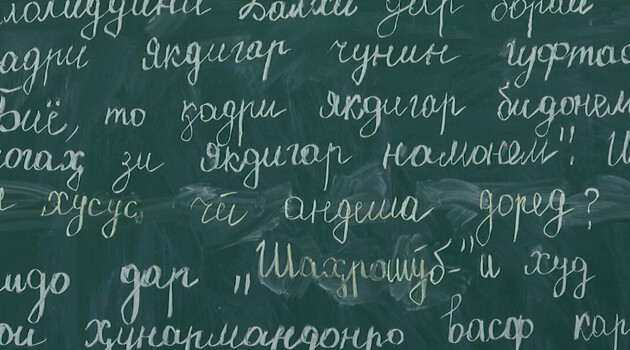 лолиддини Балхи дар бораи
адри якдигар чунин гуфтас
Биё, то қадри якдигар бидонем
ногаҳ зи якдигар намонем". И
хусус чӣ андеша доред?
идо дар „Шаҳрошӯб-"и худ
ои ҳунармандонро васф кар